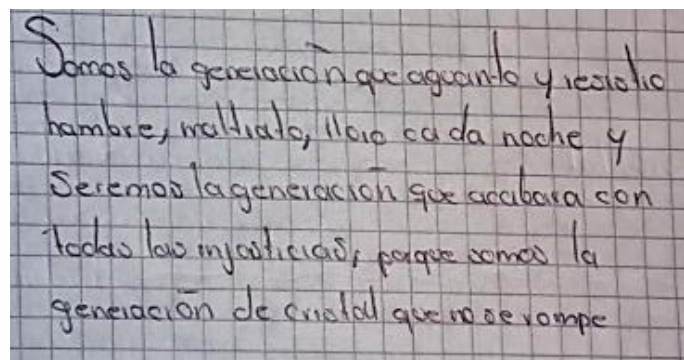 Somos la generación que aguanto y resistio
hambre, maltrato, lloro cada noche y
Seremos la generación que acabara con
todas las injusticias, porque somos la
generación de cristal que no se rompe